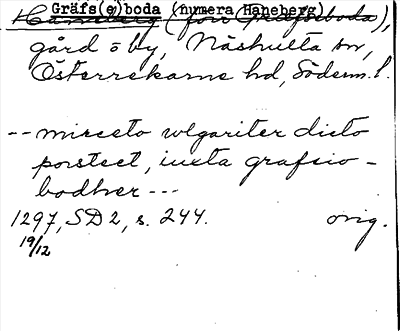 Gräfs(e)boda (numera Håneberg)
Håneberg (förr Gräfseboda),
gård o by, Näshulta sn,
Österrekarne hd, Söderm. l.
-- mirceto wlgariter dicto
porsteet, iuxta grafsio-
bodher ---
1297, SD 2, s. 244. orig.
19/12